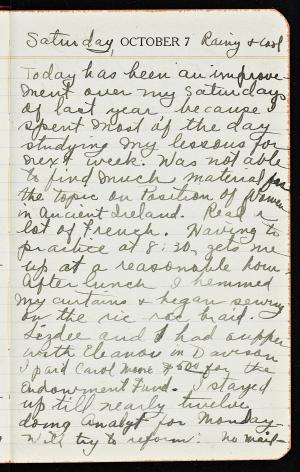 Saturday, OCTOBER 7 Rainy & cool
Today has been an improve-
ment over my Saturdays
of last year because I
spent most of the day
studying my lessons for
next week. Was not able
to find much material for
the topic on Position of Women
in Ancient Ireland. Read a
lot of French. Having to
practice at 8:30 gets me
up at a reasonable hour.
After lunch I hemmed
my curtains & began sewing
on the ric rac braid.
and I had supper
with Eleanor in Davison
I paid Carol for the
Endowment Fund. I stayed
up till nearly twelve
doing Analyt for Monday
Will try to reform. No mail